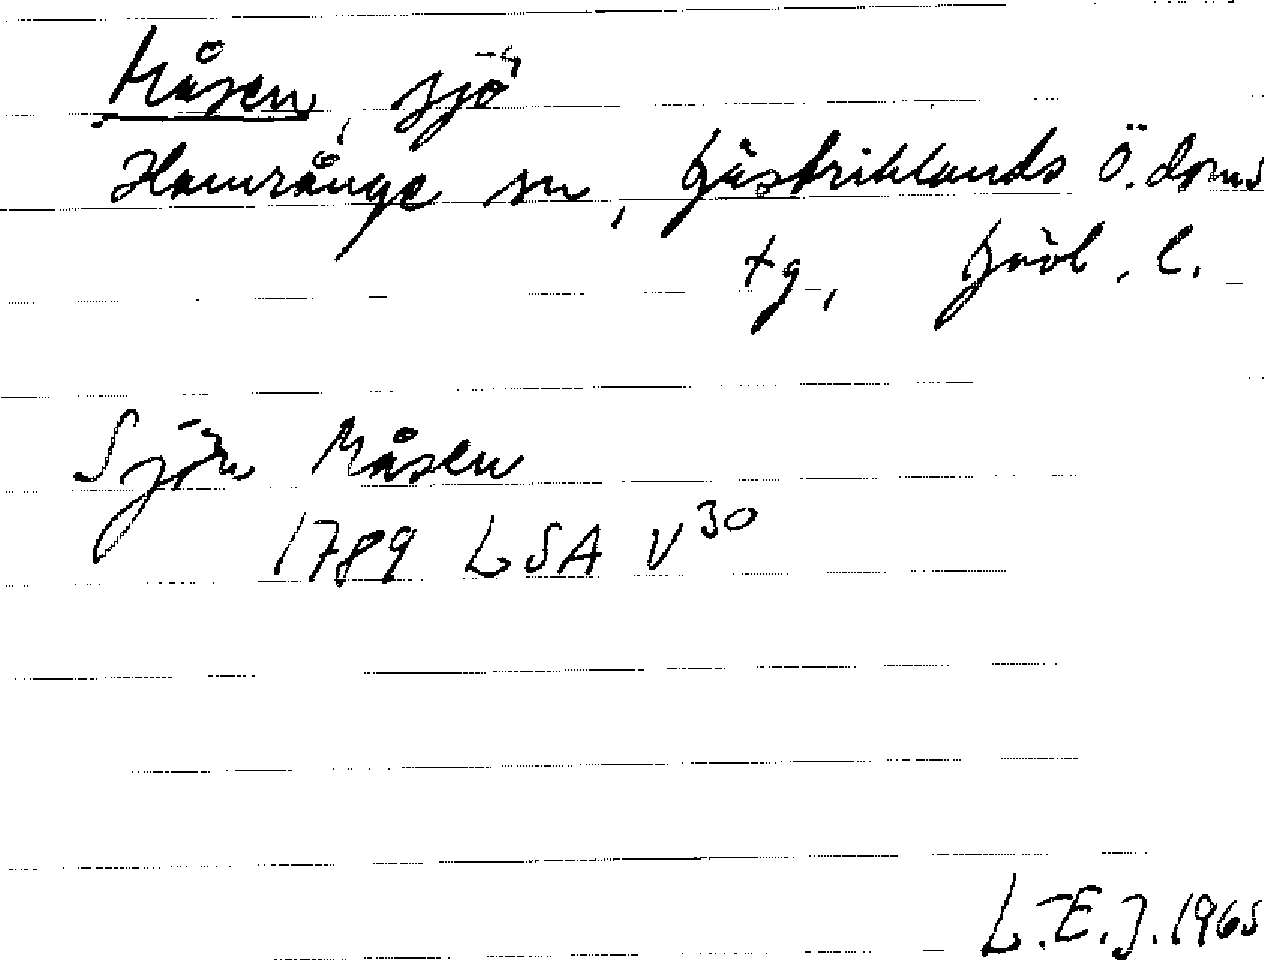 Måsen, sjö
Hamrånge sn, Gästriklands Ö. doms
tg, Gävl. l.
Sjön Måsen
1789 LSA V30
L.E.J. 1965